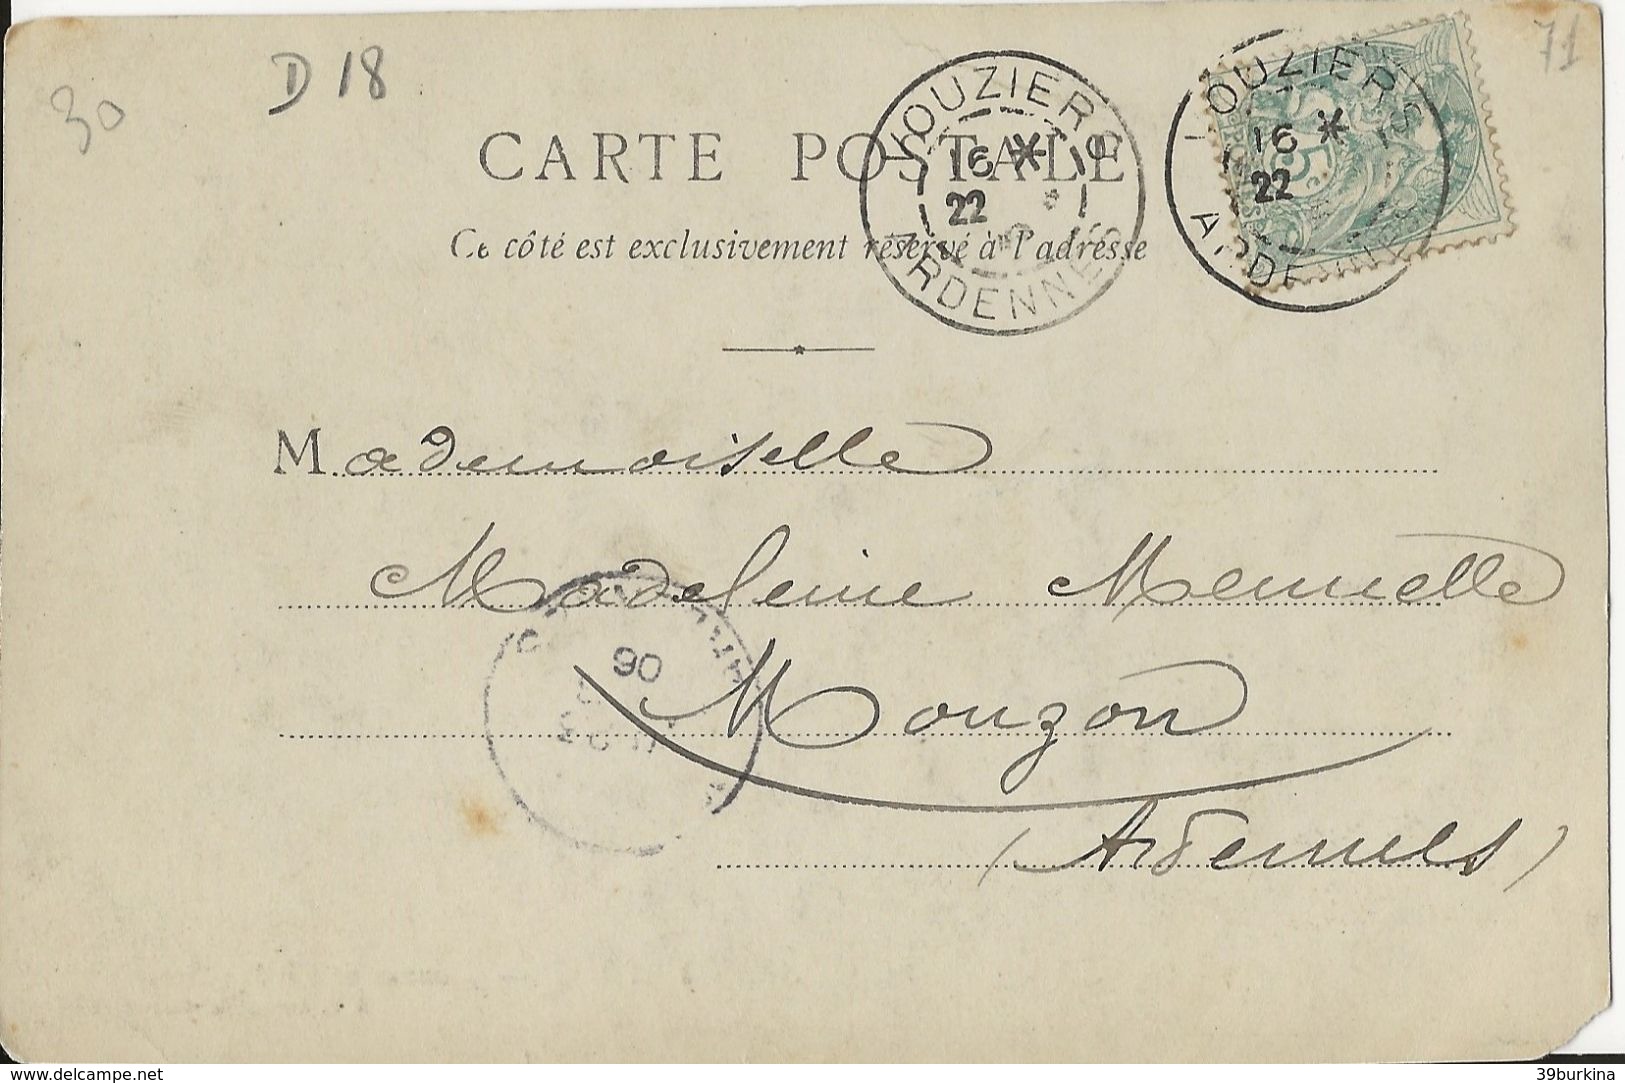 30
D 18
71
CARTE POSTALE
Ce côté est exclusivement réservé à l'adresse
VOUZIERS
16 *
22
ARDENNES
VOUZIERS
16 *
22
ARDENNES
5c
POSTES
Mademoiselle
Madeleine Mennelle
Mouzon
(Ardennes)
06
www.delcampe.net
39burkina